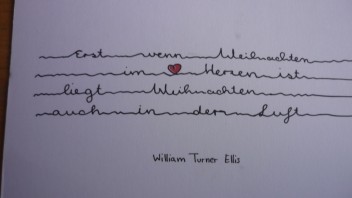 Erst wenn Weihnachten
im Herzen ist
liegt Weihnachten
auch in der Luft
William Turner Ellis